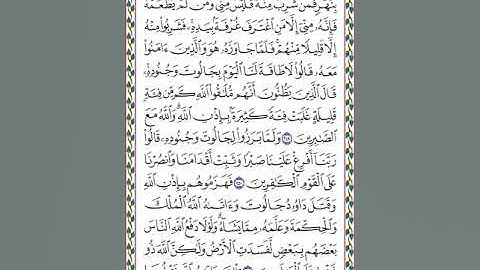 بِنَهَرٍ فَمَن شَرِبَ مِنْهُ فَلَيْسَ مِنِّى وَمَن لَّمْ يَطْعَمْهُ
فَإِنَّهُۥ مِنِّىٓ إِلَّا مَنِ ٱغْتَرَفَ غُرْفَةًۢ بِيَدِهِۦۚ فَشَرِبُوا۟ مِنْهُ
إِلَّا قَلِيلًا مِّنْهُمْۚ فَلَمَّا جَاوَزَهُۥ هُوَ وَٱلَّذِينَ ءَامَنُوا۟
مَعَهُۥ قَالُوا۟ لَا طَاقَةَ لَنَا ٱلْيَوْمَ بِجَالُوتَ وَجُنُودِهِۦۚ
قَالَ ٱلَّذِينَ يَظُنُّونَ أَنَّهُم مُّلَٰقُوا۟ ٱللَّهِ كَم مِّن فِئَةٍ
قَلِيلَةٍ غَلَبَتْ فِئَةً كَثِيرَةًۢ بِإِذْنِ ٱللَّهِۗ وَٱللَّهُ مَعَ
ٱلصَّٰبِرِينَ ۝ وَلَمَّا بَرَزُوا۟ لِجَالُوتَ وَجُنُودِهِۦ قَالُوا۟
رَبَّنَآ أَفْرِغْ عَلَيْنَا صَبْرًا وَثَبِّتْ أَقْدَامَنَا وَٱنصُرْنَا
عَلَى ٱلْقَوْمِ ٱلْكَٰفِرِينَ ۝ فَهَزَمُوهُم بِإِذْنِ ٱللَّهِ
وَقَتَلَ دَاوُۥدُ جَالُوتَ وَءَاتَىٰهُ ٱللَّهُ ٱلْمُلْكَ
وَٱلْحِكْمَةَ وَعَلَّمَهُۥ مِمَّا يَشَآءُۗ وَلَوْلَا دَفْعُ ٱللَّهِ ٱلنَّاسَ
بَعْضَهُم بِبَعْضٍ لَّفَسَدَتِ ٱلْأَرْضُ وَلَٰكِنَّ ٱللَّهَ ذُو